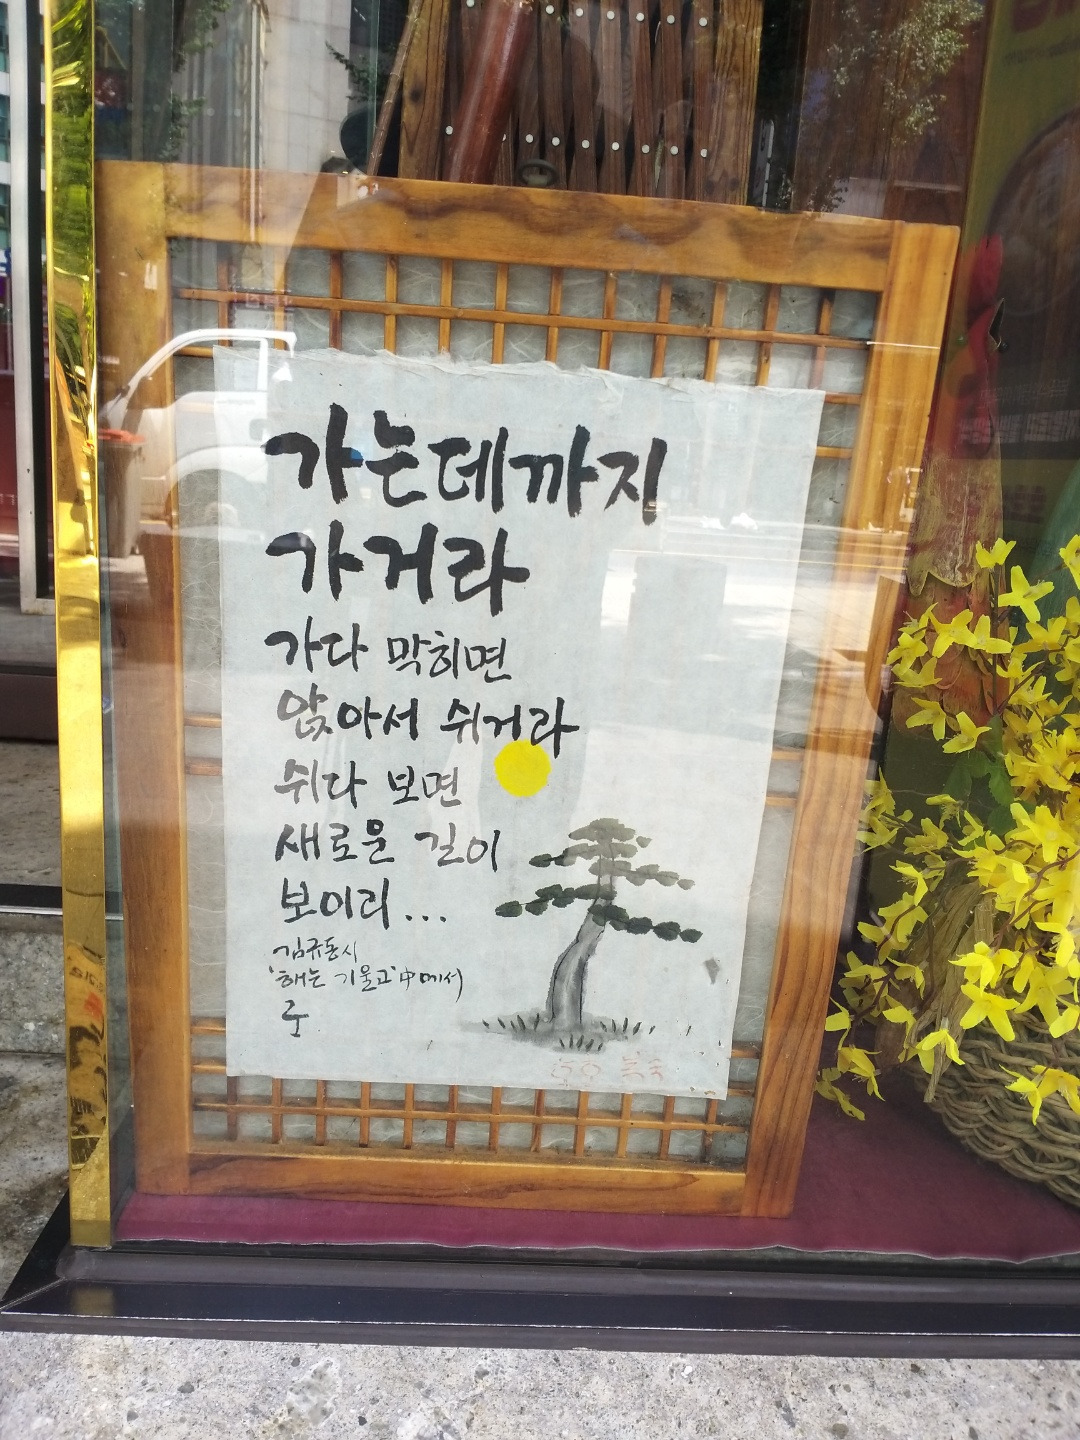 가는데까지
가거라
가다 막히면
앉아서 쉬거라
쉬다 보면
새로운 길이
보이리...
김규동시
'해는 기울고'中에서